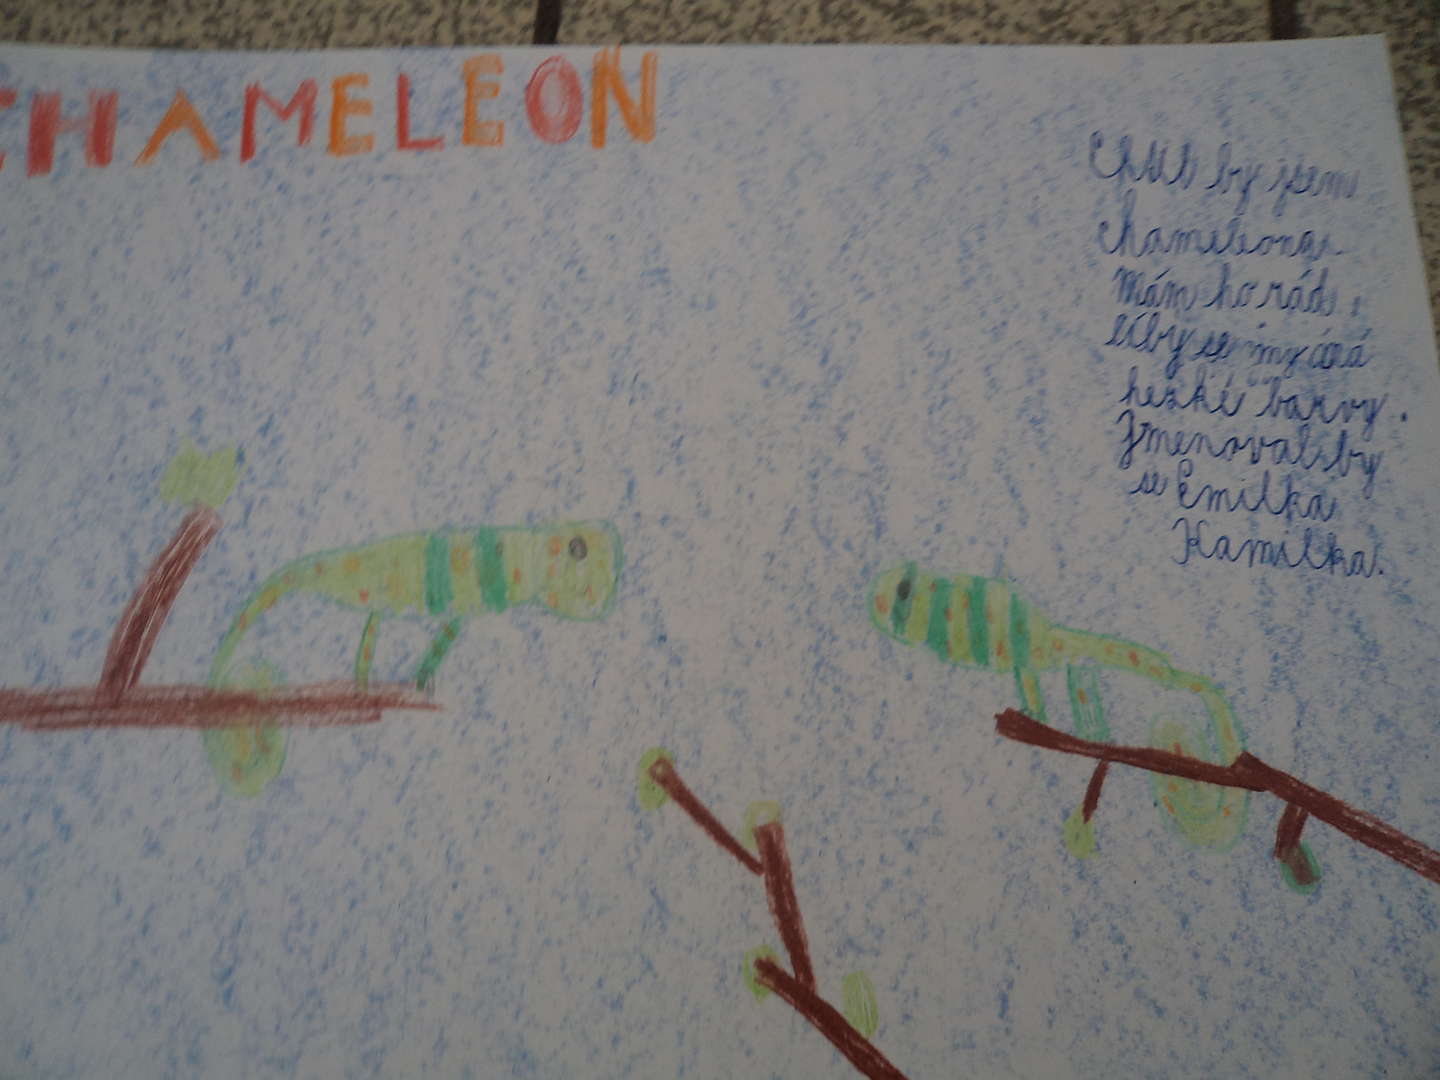 CHAMELEON
Chtěl by jsem
chameleona.
Mám ho rád,
líby se
hezké barvy.
Jmenovali by
se Emilka
Kamilka.